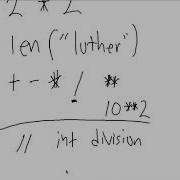 2 * 2
len("luther")
+ - * / **
10**2
// int division